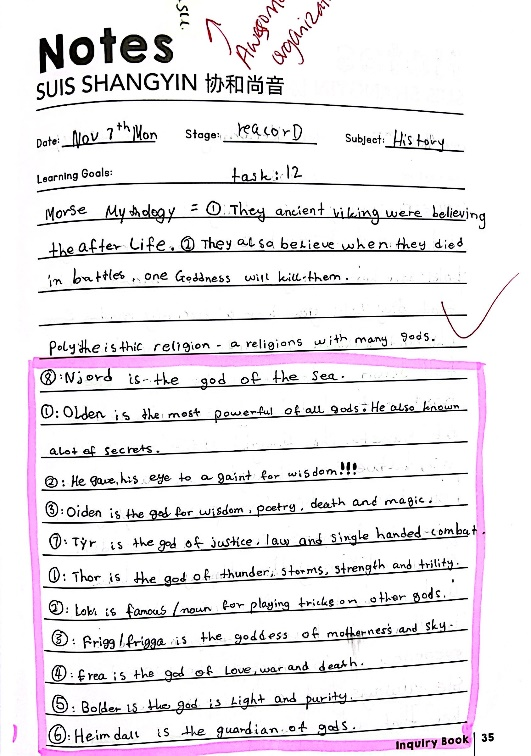 Awesome
organizat
Notes
SUIS SHANGYIN 协和尚音
Date: Nov 7th Mon Stage: reacorD Subject: History
Learning Goals: task: 12
Morse Mythology = ① They ancient viking were believing
the after Life. ② They alsa believe when they died
in battles, one Goddness will kill them.
Polytheisthic religion - a religions with many gods.
⑧: Njord is the god of the sea.
①: Olden is the most powerful of all gods. He also known
alot of secrets.
②: He gave his eye to a gaint for wisdom!!!
③: Oiden is the god for wisdom, poetry, death and magic.
⑦: Týr is the god of justice, law and single handed-combat.
①: Thor is the god of thunder, storms, strength and trility.
②: Loki is famous /noun for playing tricks on other gods.
③: Frigg/frigga is the goddess of motherness and sky.
④: frea is the god of Love, war and death.
⑤: Bolder is the god is Light and purity.
⑥: Heimdall is the guardian of gods.
Inquiry Book 35